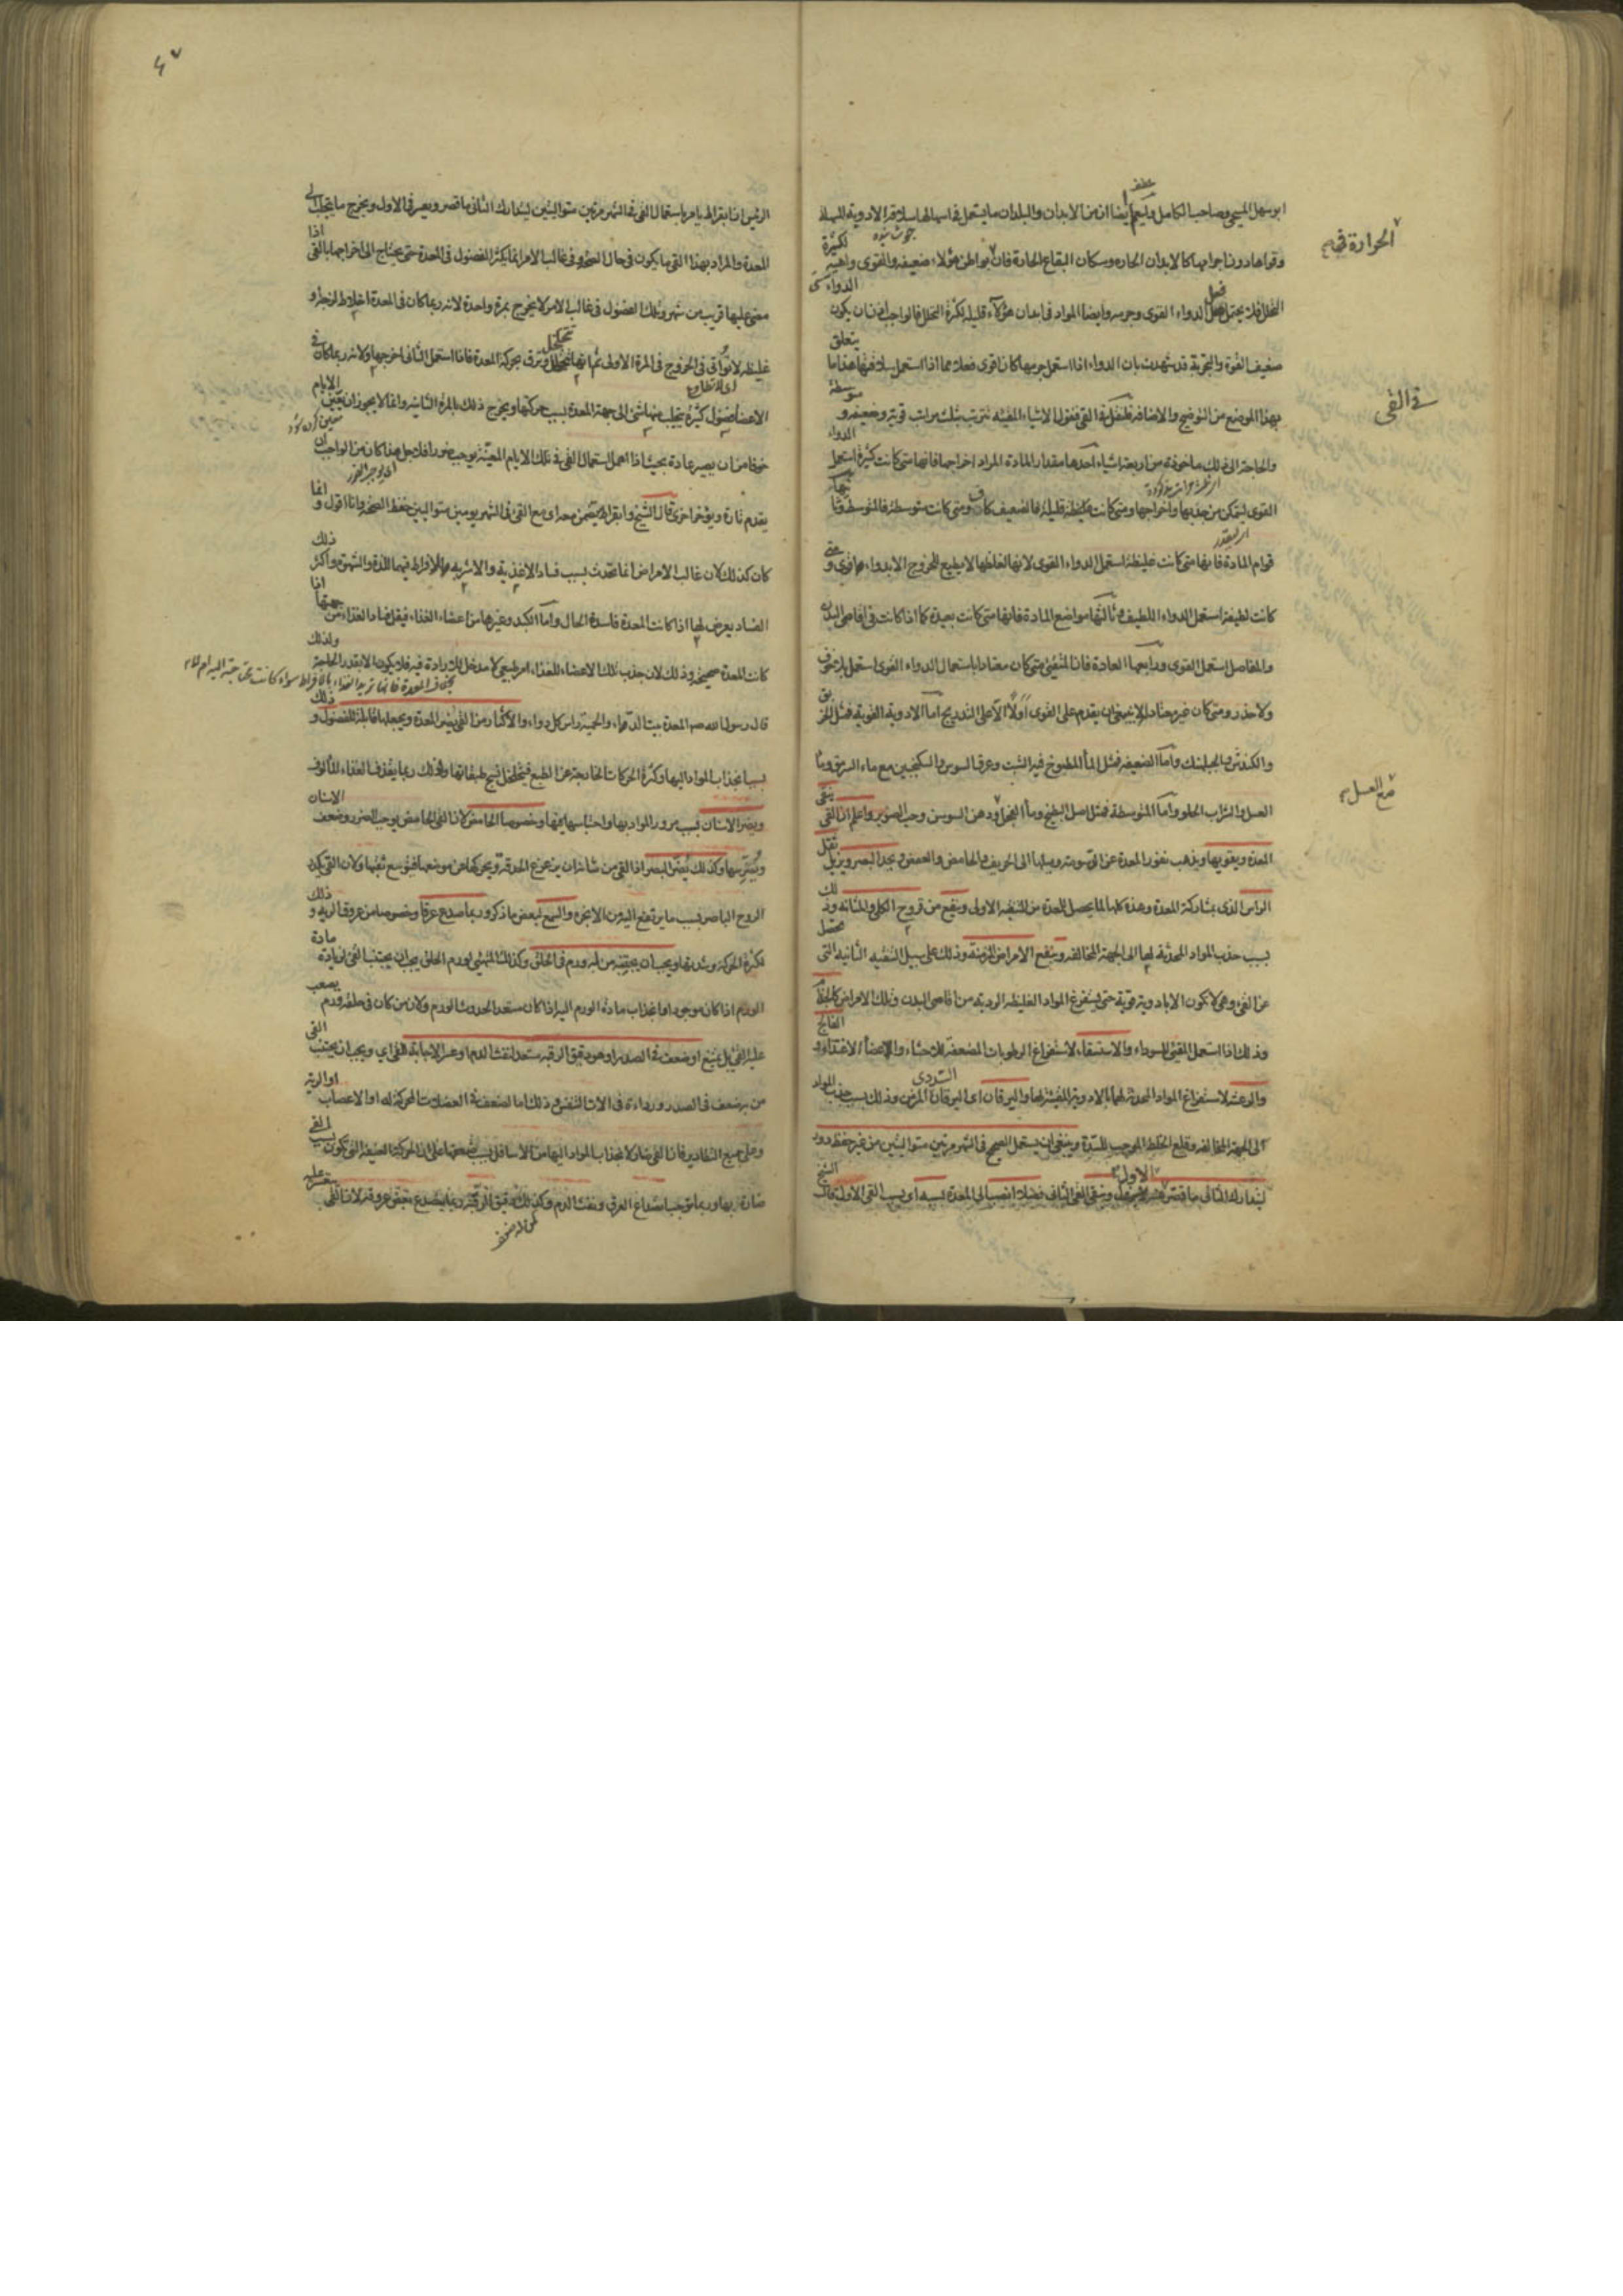 ابو سهل المسيحى وصاحب الكامل وليعلم ايضا ان من الابدان والبلدان ما يستعمل فى اسهالها سلاقة الادوية المسهلة
وقواها دون اجرامها كالابدان الحارة وسكان البقاع الحارة فان بواطن هؤلاء ضعيفة والقوى واهية لكثرة
التحلل فلا يحتمل فعل الدواء القوى وجرمه وايضا المواد فى ابدان هؤلاء قليلة لكثرة التحلل فالواجب ان يكون الدواء
ضعيف القوة والتجربة قد شهدت بان الدواء اذا استعمل جرمها كان اقوى فعلا مما اذا استعمل سلاقتها هذا ما يتعلق
بهذا الموضع من التوضيح والاضافة القئ فنقول الاشياء المقيئة ترتب بثلث مراتب قوية وضعيفة ومتوسطة
والحاجة الى ذلك ماخوذة من اربعة اشياء احدها مقدار المادة المراد اخراجها فانها متى كانت كثيرة استعمل الدواء
القوى ليتمكن من جذبها واخراجها ومتى كانت قليلة فالضعيف كاف ومتى كانت متوسطة فالمتوسط وثانيها
قوام المادة فانها متى كانت غليظة استعمل الدواء القوى لانها لغلظها لا يطيع للخروج الا بدواء قوى ومتى
كانت لطيفة استعمل الدواء اللطيف وثالثها مواضع المادة فانها متى كانت بعيدة كما اذا كانت فى اقاصى البدن
والمفاصل استعمل القوى ورابعها العادة فان المتقيئ متى كان معتادا باستعمال الدواء القوى استعمل بلا خوف
ولا حذر ومتى كان غير معتاد لا ينبغى ان يقدم على القوى اولا الا على التدريج اما الادوية القوية فمثل الخربق
والكندش والجبلهنك واما الضعيفة فمثل الماء المطبوخ فيه الشبت وعرق السوس والسكنجبين مع ماء السرمق وماء
العسل والشراب الحلو واما المتوسطة فمثل اصل البطيخ وماء الفجل ودهن السوسن وحب الصنوبر واعلم ان القئ ينقى
المعدة ويقويها ويذهب نفور المعدة عن الدسومة وميلها الى الحريف والحامض والعفص ويحد البصر ويزيل ثقل
الراس الذى بمشاركة المعدة وهذه كلها لما يحصل للمعدة من التنقية الاولى وينفع من قروح الكلى والمثانة وذلك
بسبب جذب المواد المحدثة لها الى الجهة المخالفة وينفع الامراض المزمنة وذلك على سبيل التنقية الثانية التى تحصل
عن القئ وهى لا تكون الا بادوية قوية حتى يستفرغ المواد الغليظة الردية من اقاصى البدن وتلك الامراض كالجذام
وذلك اذا استعمل المقيئ للسوداء والاستسقاء لاستفراغ الرطوبات المضعفة للاحشاء والاعضاء الاغتذاء والفالج
والرعشة لاستفراغ المواد المحدثة لهما بالادوية المقيئة لها واليرقان اى اليرقان السددى المزمن وذلك بسبب جذب المواد
الى الجهة المخالفة وقلع الخلط الموجب للسدة وينبغى ان يستعمل الصحيح فى الشهر مرتين متواليتين من غير حفظ دور
ليتدارك الثانى ما قصر الاول وينقى القئ الثانى فضلا انصب الى المعدة بسببه اى بسبب القئ الاول قال الشيخ
الحرارة فى
فى القى
مع العسل
الرئيس ان ابقراط يامر باستعمال القئ فى الشهر مرتين متواليتين ليتدارك الثانى ما قصر وتعسر فى الاول ويخرج ما يتحلب الى
المعدة والمراد بهذا القئ ما يكون فى حال الصحة وفى غالب الامر انما يكثر الفضول فى المعدة حتى يحتاج الى اخراجها بالقئ اذا
مضى عليها قريب من شهر وتلك الفضول فى غالب الامر لا يخرج بمرة واحدة لانه ربما كان فى المعدة اخلاط لزجة او
غليظة لا تواتى فى الخروج فى المرة الاولى ثم انها تتحلل وترق بحركة المعدة فاذا استعمل الثانى اخرجها ولانه ربما كان فى
الاعضاء فضول كثيرة يتحلب منها شئ الى جهة المعدة بسبب حركتها ويخرج ذلك بالمرة الثانية وانما لا يجوز ان يعين الايام
خوفا من ان يصير عادة بحيث اذا اهمل استعمال القئ فى تلك الايام المعينة يوجب ضررا فلاجل هذا كان من الواجب ان
يقدم تارة ويؤخر اخرى قال الشيخ وابقراط يضمن معه اى مع القئ فى الشهر يومين متواليين حفظ الصحة وانا اقول وانما
كان كذلك لان غالب الامراض انما تحدث بسبب فساد الاغذية والاشربة والافراط فيهما للذة والشهوة واكثر ذلك
الفساد يعرض لها اذا كانت المعدة فاسدة الحال واما الكبد وغيرها من اعضاء الغذاء فيقل فساد الغذاء من جهتها اذا
كانت المعدة صحيحة وذلك لان جذب تلك الاعضاء للغذاء امر طبيعى لا مدخل للارادة فيه فلا يكون الا بقدر الحاجة ولذلك
بخلاف المعدة فانها تريد الغذاء بالافراط سواء كانت محتاجة اليه ام لا
قال رسول الله صم المعدة بيت الداء والحمية راس كل دواء والاكثار من القئ يضر المعدة ويجعلها قابلة للفضول وذلك
بسبب انجذاب المواد اليها وكثرة الحركات الخارجة عن الطبع فيتخلخل نسج طبقاتها ولذلك ربما يقذف الغذاء المالوف
ويضر الاسنان بسبب مرور المواد بها واحتباسها فيها وخصوصا الحامض لان القئ الحامض يوجب الضرر وضعف الاسنان
وتضرسها وكذلك يضر البصر اذا القئ من شانه ان يزعزع الحدقة ويحركها عن موضعها فيتوسع ثقبها ولان القئ يكدر
الروح الباصر بسبب ما يرتفع اليه من الابخرة والسمع لبعض ما ذكر وربما صدع عرقا وخصوصا من عروق الرية وذلك
لكثرة الحركة وشدتها ويجب ان يجتنبه من له ورم فى الحلق وكذلك المتهيئ لورم الحلق يجب ان يجتنب القئ لزيادة مادة
الورم اذا كان موجودا وانجذاب مادة الورم اليه اذا كان مستعدا لحدوث الورم ولان من كان فى حلقه ورم يصعب
عليه القئ بل يمتنع او ضعف فى الصدر او هو دقيق الرقبة مستعد لنفث الدم او عسر الاجابة للقئ اى ويجب ان يجتنب القئ
من به ضعف فى الصدر ورداءة فى الات النفس وذلك اما لضعف فى العضلات المحركة له او الاعصاب او الرية
وعلى جميع التقادير فان القئ ضار لانجذاب المواد اليها من الاسافل بسبب ضعفها على ان الحركة العنيفة التى تكون بسبب القئ
ضارة بها وربما توجب انصداع العرق ونفث الدم وكذلك دقيق الرقبة ربما ينصدع بعض عروقه لان القئ يتعسر عليه